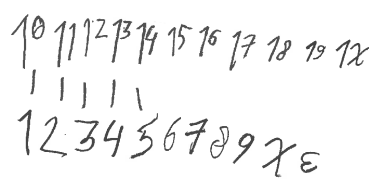 10 11 12 13 14 15 16 17 18 19 1X
1 2 3 4 5 6 7 8 9 X Ɛ